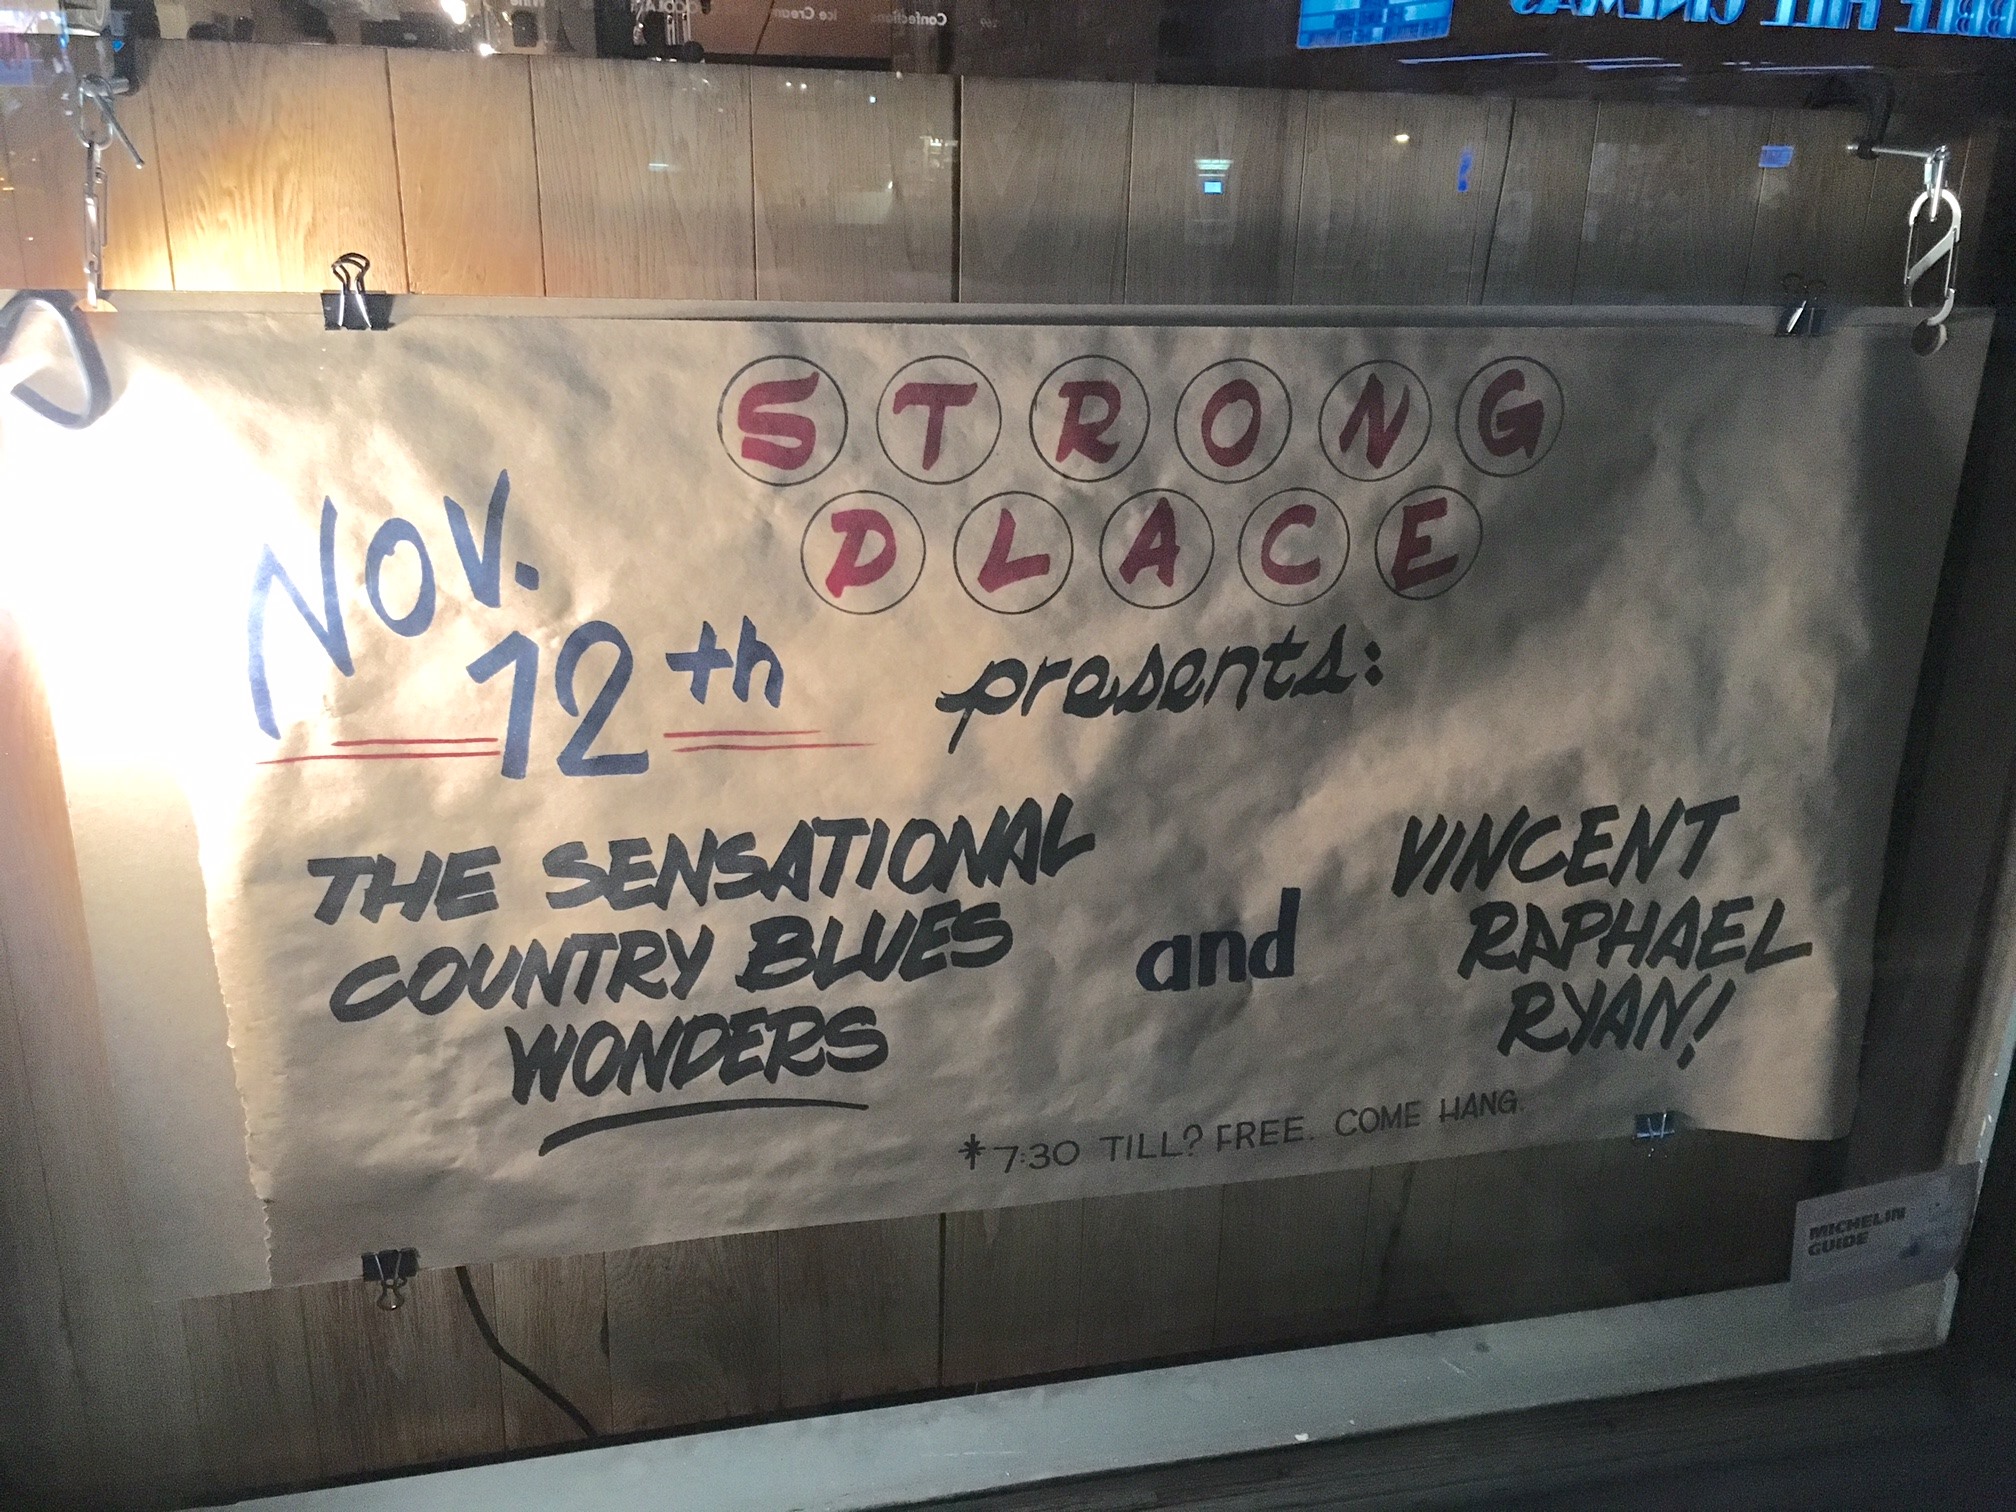 Confections
Ice Cream
COBBLE HILL CINEMAS
STRONG
PLACE
NOV.
12th
presents:
THE SENSATIONAL
COUNTRY BLUES
WONDERS
and
VINCENT
RAPHAEL
RYAN!
*7:30 TILL? FREE. COME HANG.
MICHELIN
GUIDE